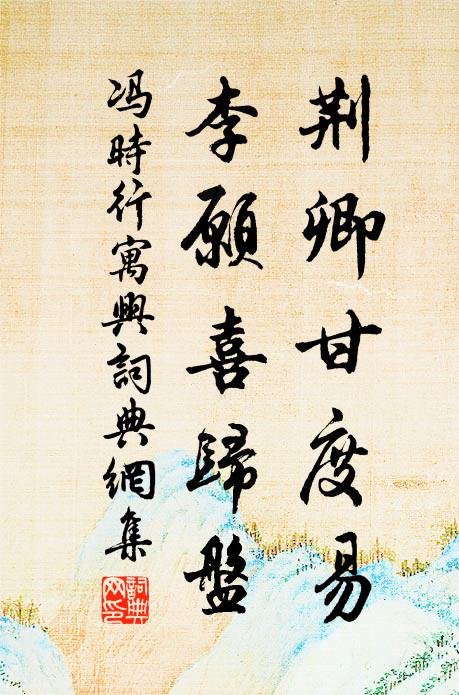 荆卿甘度易
李願喜歸盤
冯時行寓興詞典網集
詞典网印